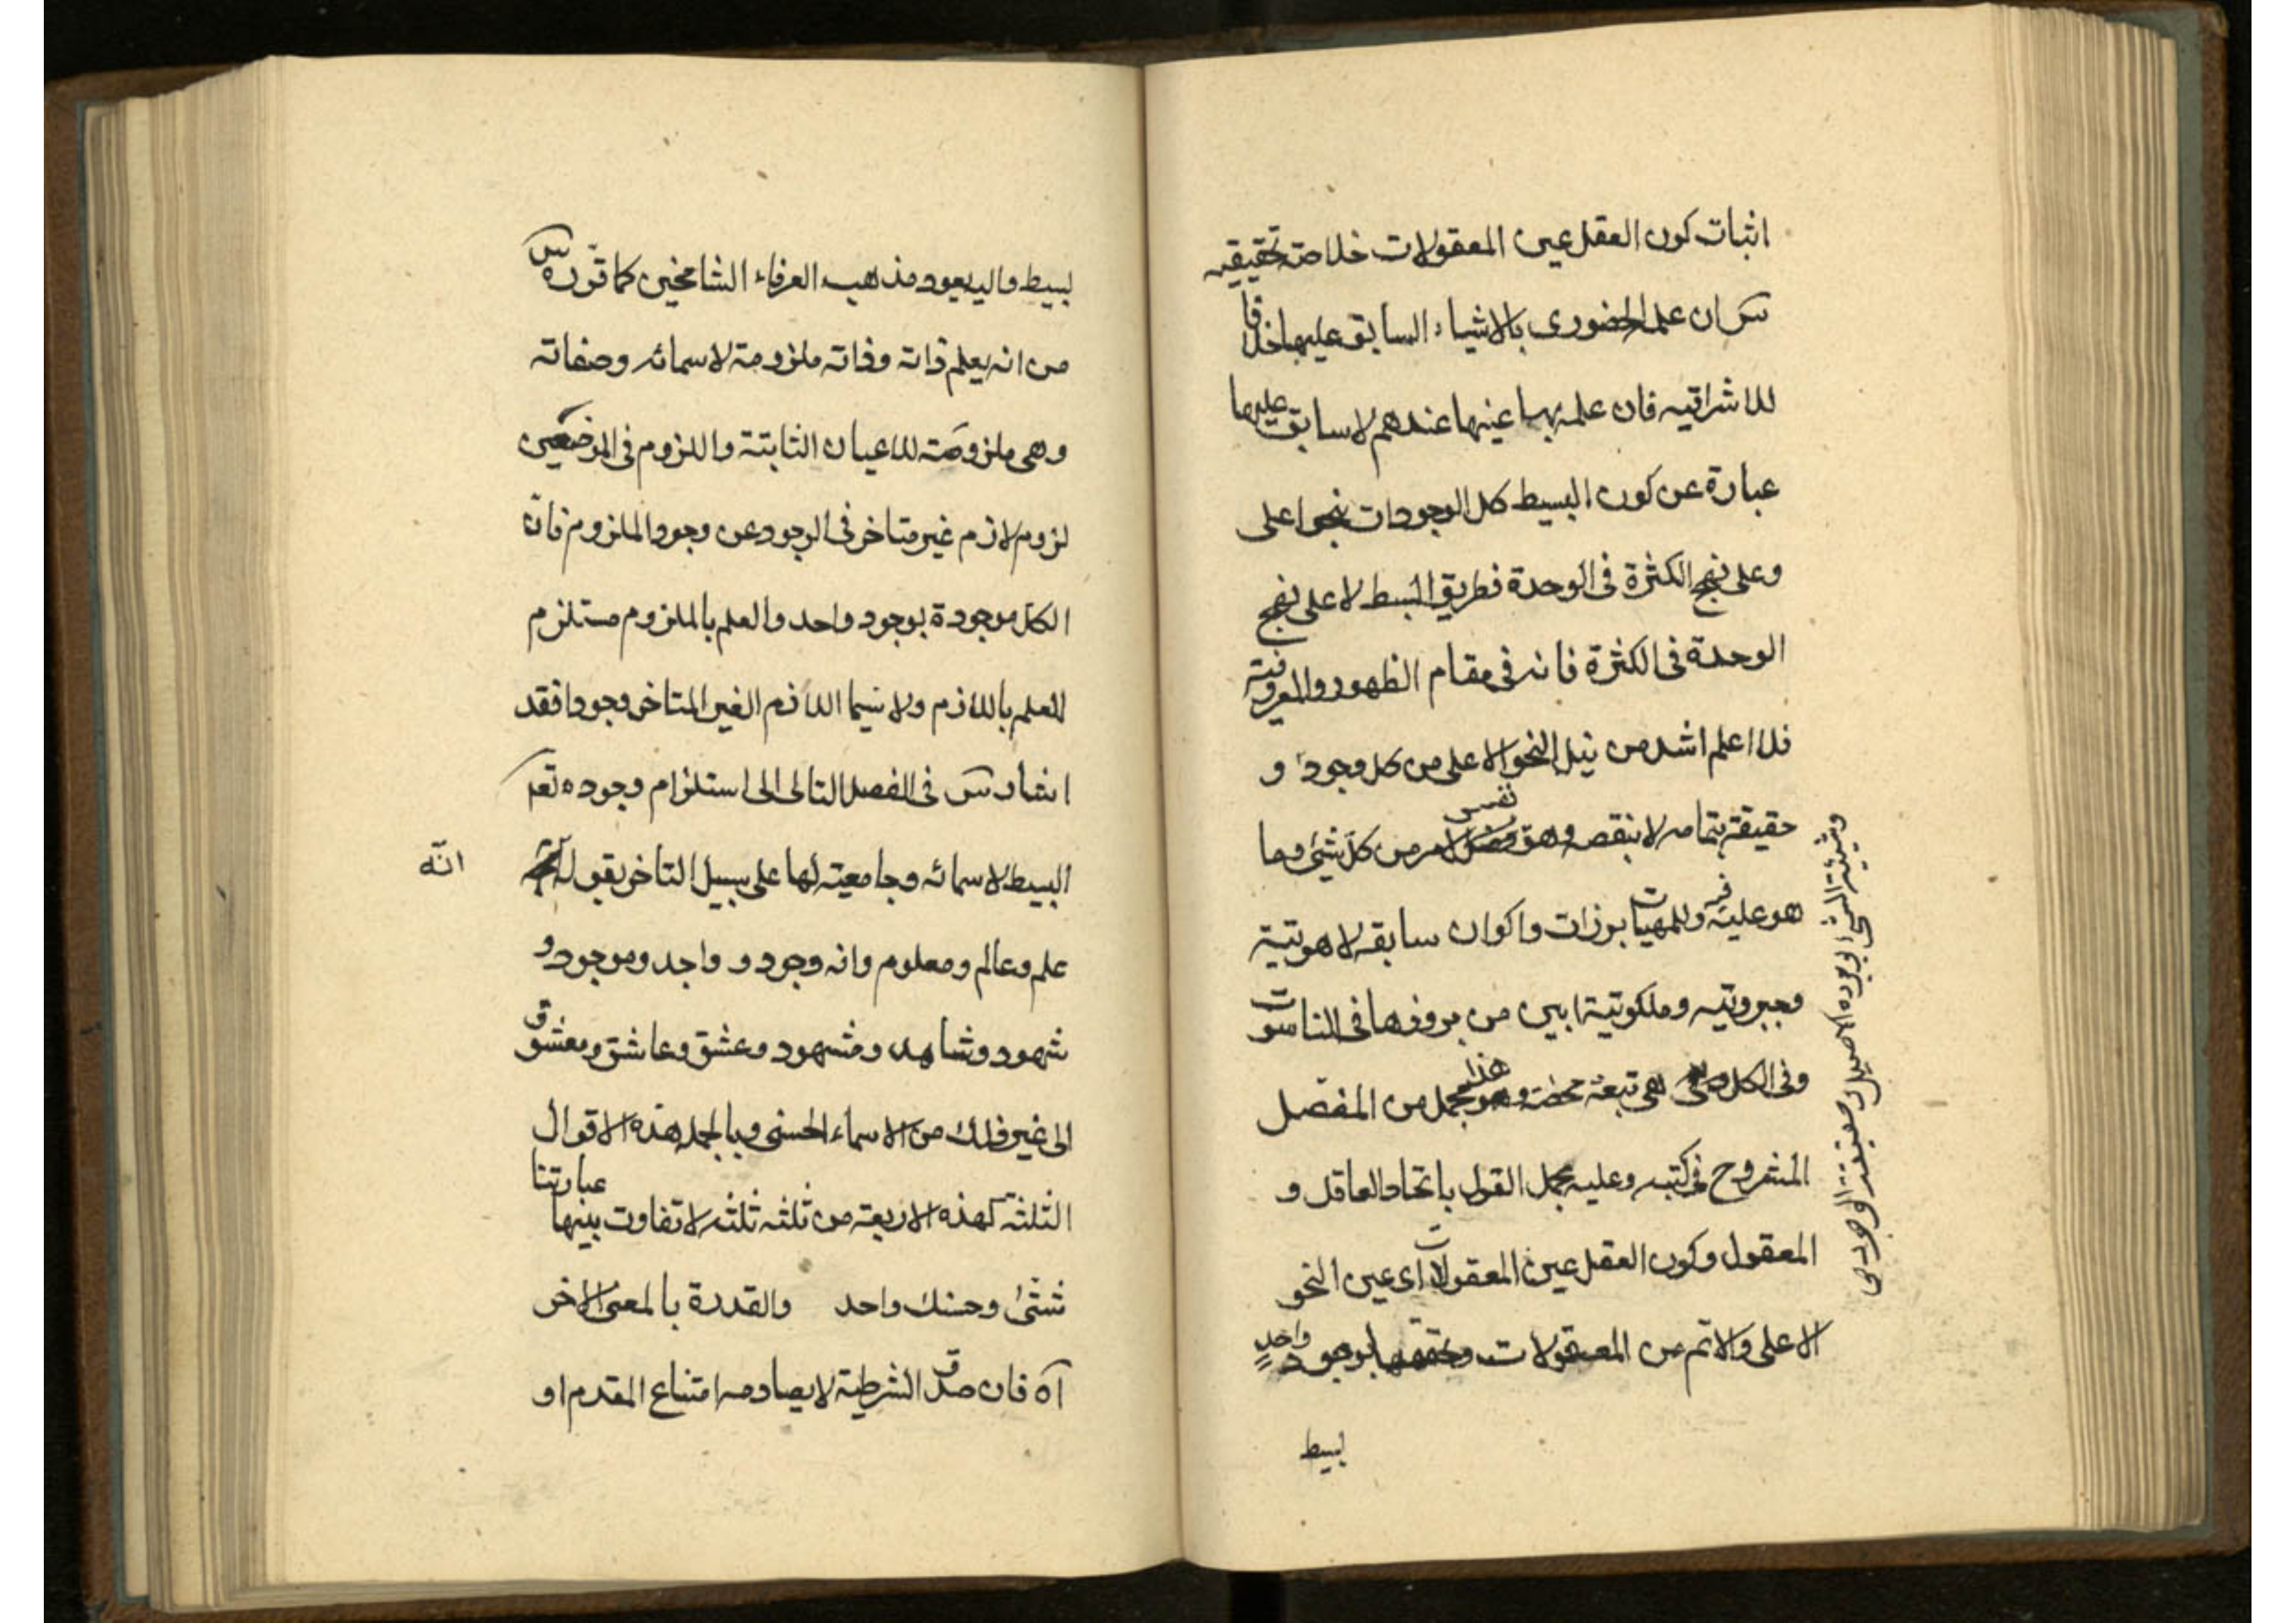 اثبات كون العقل عين المعقولات خلاصة تحقيقه
س ان علمه الحضورى بالاشياء السابق عليها خلافا
للاشراقيه فان علمه بها عينها عندهم لا سابق عليها
عبارة عن كون البسيط كل الوجودات بنحو اعلى
وعلى نهج الكثرة فى الوحدة فطريق البسط لا على نهج
الوحدة فى الكثرة فانه فى مقام الظهور والمعروفية
فلا اعلم اشد من نيل النحو الاعلى من كل وجود و
حقيقته بتمامه لا بنقصه وهو نفس الامر من كل شئ وما
هو عليه فيه وللمهيات برزات واكوان سابقه لاهوتية
وجبروتيه وملكوتية ابين من بروزها فى الناسوت
وفى الكل هى تبعة محضه و هذا مجمل من المفصل
المشروح فى كتبه وعليه يحمل القول باتحاد العاقل و
المعقول وكون العقل عين المعقولات اى عين النحو
الاعلى والاتم من المعقولات وتحققها بوجود واحد
بسيط
وشيئية الشئ بوجوده الاصيل وحقيقته الوجودى
بسيط واليه يعود مذهب العرفاء الشامخين كما قرره س
من انه يعلم ذاته وذاته ملزومة لاسمائه وصفاته
وهى ملزومة للاعيان الثابتة واللزوم فى الموضعين
لزوم لازم غير متاخر فى الوجود عن وجود الملزوم فان
الكل موجودة بوجود واحد والعلم بالملزوم مستلزم
للعلم باللازم ولا سيما اللازم الغير المتاخر وجودا فقد
اشار س فى الفصل التالى الى استلزام وجوده تعـ
البسيط لاسمائه وجامعيته لها على سبيل التاخر بقوله
انّه
علم وعالم ومعلوم وانه وجود و واجد وموجود و
شهود وشاهد ومشهود وعشق وعاشق ومعشوق
الى غير ذلك من الاسماء الحسنى وبالجمله هذه الاقوال
الثلثه كهذه الاربعة من ثلثه ثلثه لا تفاوت بينها عباراتنا
شتى وحسنك واحد والقدرة بالمعنى الاخر
آه فان صدق الشرطية لا يصادمه امتناع المقدم او